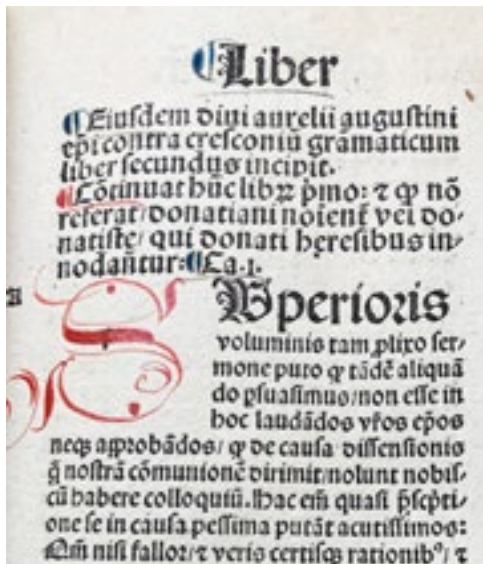 ¶Liber
¶Eiusdem diui aurelii augustini
ep̄i contra cresconiū gramaticum
liber secundus incipit.
¶Cōtinuat hūc librꝝ p̄mo: ⁊ ꝙ nō
referat/donatiani noient᷑ vel do⸗
natiste/ qui donati hęresibus in⸗
nodantur:¶Ca.1.
SVperioris
voluminis tam ꝓlixo ser⸗
mone puto ꝙ tādē aliquā
do ꝑsuasimus/non esse in
hoc laudādos vr̄os ep̄os
neqꝫ aꝓrobādos/ ꝙ de causa dissensionis
q̄ nostrā cōmunionē dirimit/nolunt nobis⸗
cū habere colloquiū. Hac em̄ quasi p̄scp̄ti⸗
one se in causa pessima putāt acutissimos:
Qm̄ nisi fallor/⁊ veris certisqꝫ rationibꝰ/ ⁊